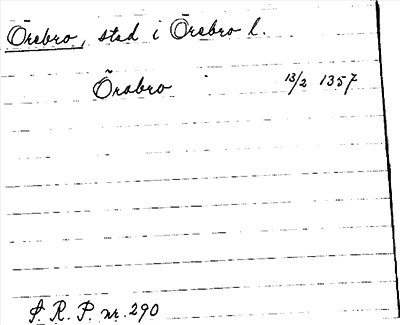 Örebro, stad i Örebro l.
Örebro 13/2 1357
S. R. P. nr. 290